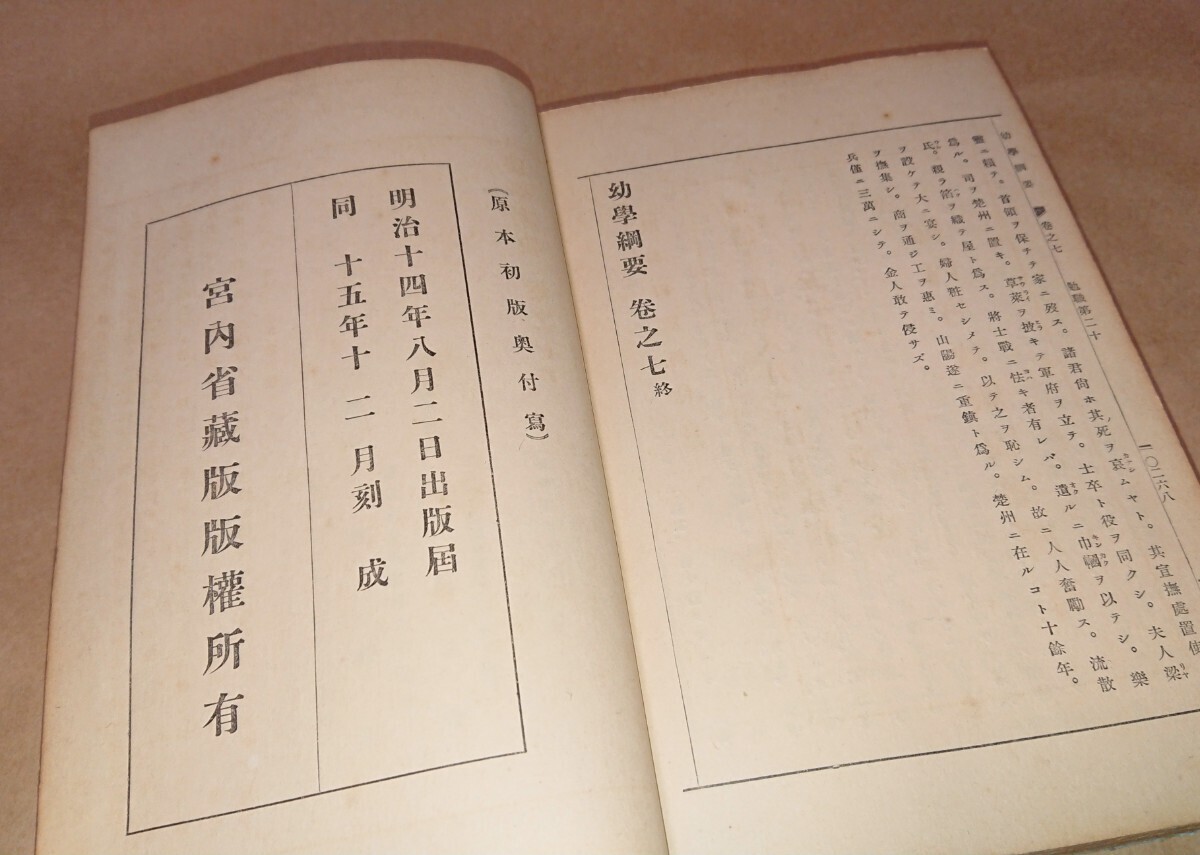 幼學綱要 卷之七 勉職第二十 二〇二六八
靈ニ稽テ。首領ヲ保チテ家ニ歿ス。諸君尙ホ其死ヲ哀ムヤト。其宣撫處置使
爲ル。司ヲ楚州ニ置キ。草萊ヲ披キテ軍府ヲ立テ。士卒ト役ヲ同クシ。夫人梁
氏。親ラ箔ヲ織テ屋ト爲ス。將士戰ニ怯キ者有レバ。遺ルニ巾幗ヲ以テシ。樂
ヲ設ケテ大ニ宴シ。婦人粧セシメテ。以テ之ヲ恥シム。故ニ人人奮勵ス。流散
ヲ撫集シ。商ヲ通ジ工ヲ惠ミ。山陽遂ニ重鎭ト爲ル。楚州ニ在ルコト十餘年。
兵僅ニ三萬ニシテ。金人敢テ侵サズ。
幼學綱要 卷之七 終
(原本初版奧付寫)
明治十四年八月二日出版屆
同 十五年十二月刻成
宮內省藏版版權所有